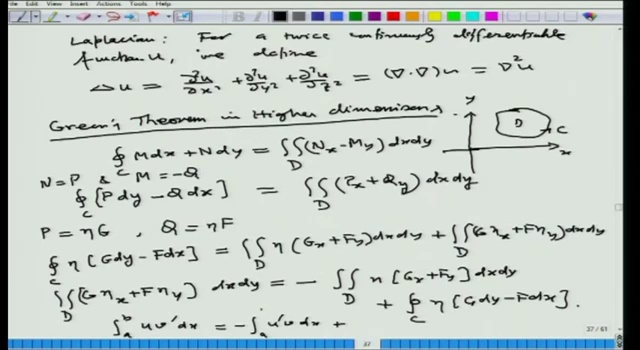 File Edit View Insert Actions Tools Help
Laplacian: For a twice continuously differentiable
function u, we define
Δu = ∂²u/∂x² + ∂²u/∂y² + ∂²u/∂z² = (∇·∇)u = ∇²u
Green's Theorem in Higher dimensions
y
D
C
x
∮_C Mdx + Ndy = ∬_D (N_x - M_y) dxdy
N = P & M = -Q
∮_C [P dy - Q dx] = ∬_D (P_x + Q_y) dxdy
P = ηG , Q = ηF
∮_C η [G dy - F dx] = ∬_D η (G_x + F_y) dxdy + ∬_D (G η_x + F η_y) dxdy
∬_D [G η_x + F η_y] dxdy = - ∬_D η [G_x + F_y] dxdy
+ ∮_C η [G dy - F dx].
∫_a^b u v' dx = - ∫_a u' v dx +
37 / 61
37